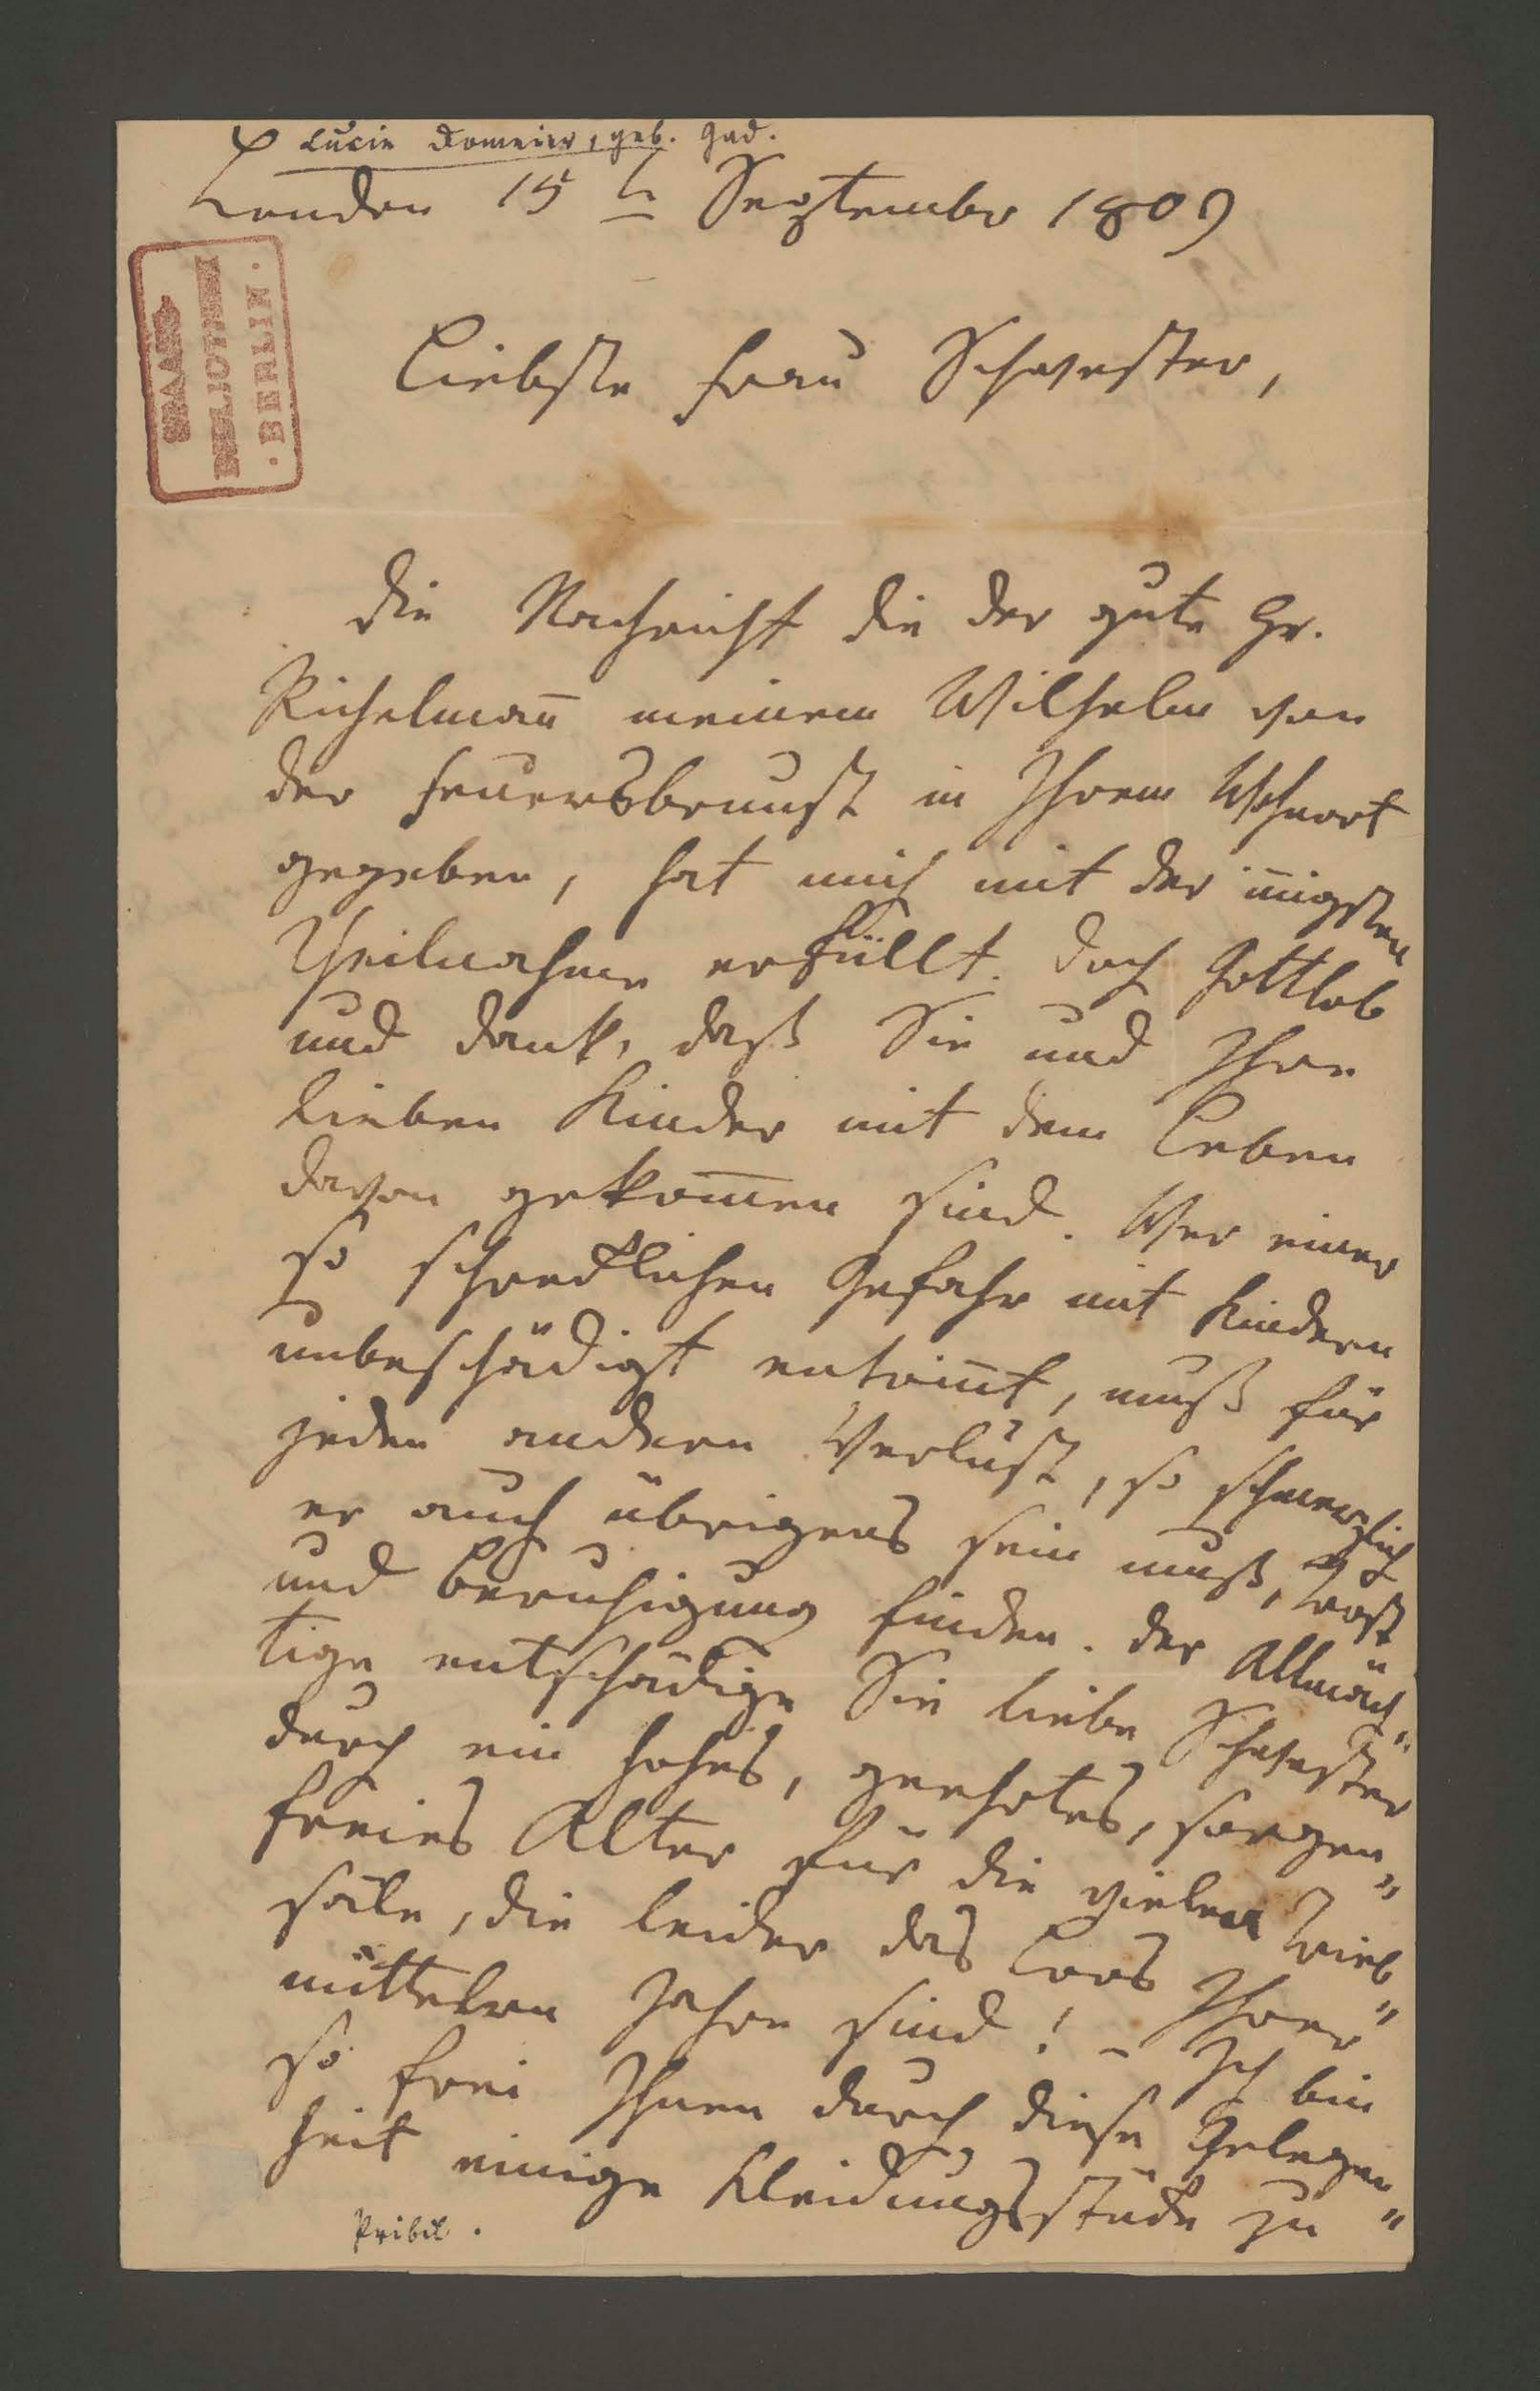 Lucie Domeier, geb. Gad.
London 15 t September 1809
STAATS
BIBLIOTHEK
· BERLIN ·
Liebste Frau Schwester,
Die Nachricht die der gute Hr.
Richelman̅ meinem Wilhelm von
der Feuersbrunst in Ihrem Wohnort
gegeben, hat mich mit der in̅igsten
Theilnahme erfüllt. Doch Gottlob
und Dank, daß Sie und Ihre
lieben Kinder mit dem Leben
davon gekom̅en sind. Wer einer
so schrecklichen Gefahr mit Kindern
unbeschädigt entrin̅t, muß für
jeden andern Verlust, so schmerzlich
er auch übrigens sein muß, Trost
und Beruhigung finden. Der Allmäch„
tige entschädige Sie liebe Schwester
durch ein hohes, geehrtes, sorgen„
freies Alter für die vielen Trieb„
säle, die leider das Loos Ihrer
mittelern Jahre sind! – Ich bin
so frei Ihnen durch diese Gelegen„
heit einige Kleidungsstücke zu
Pribil.